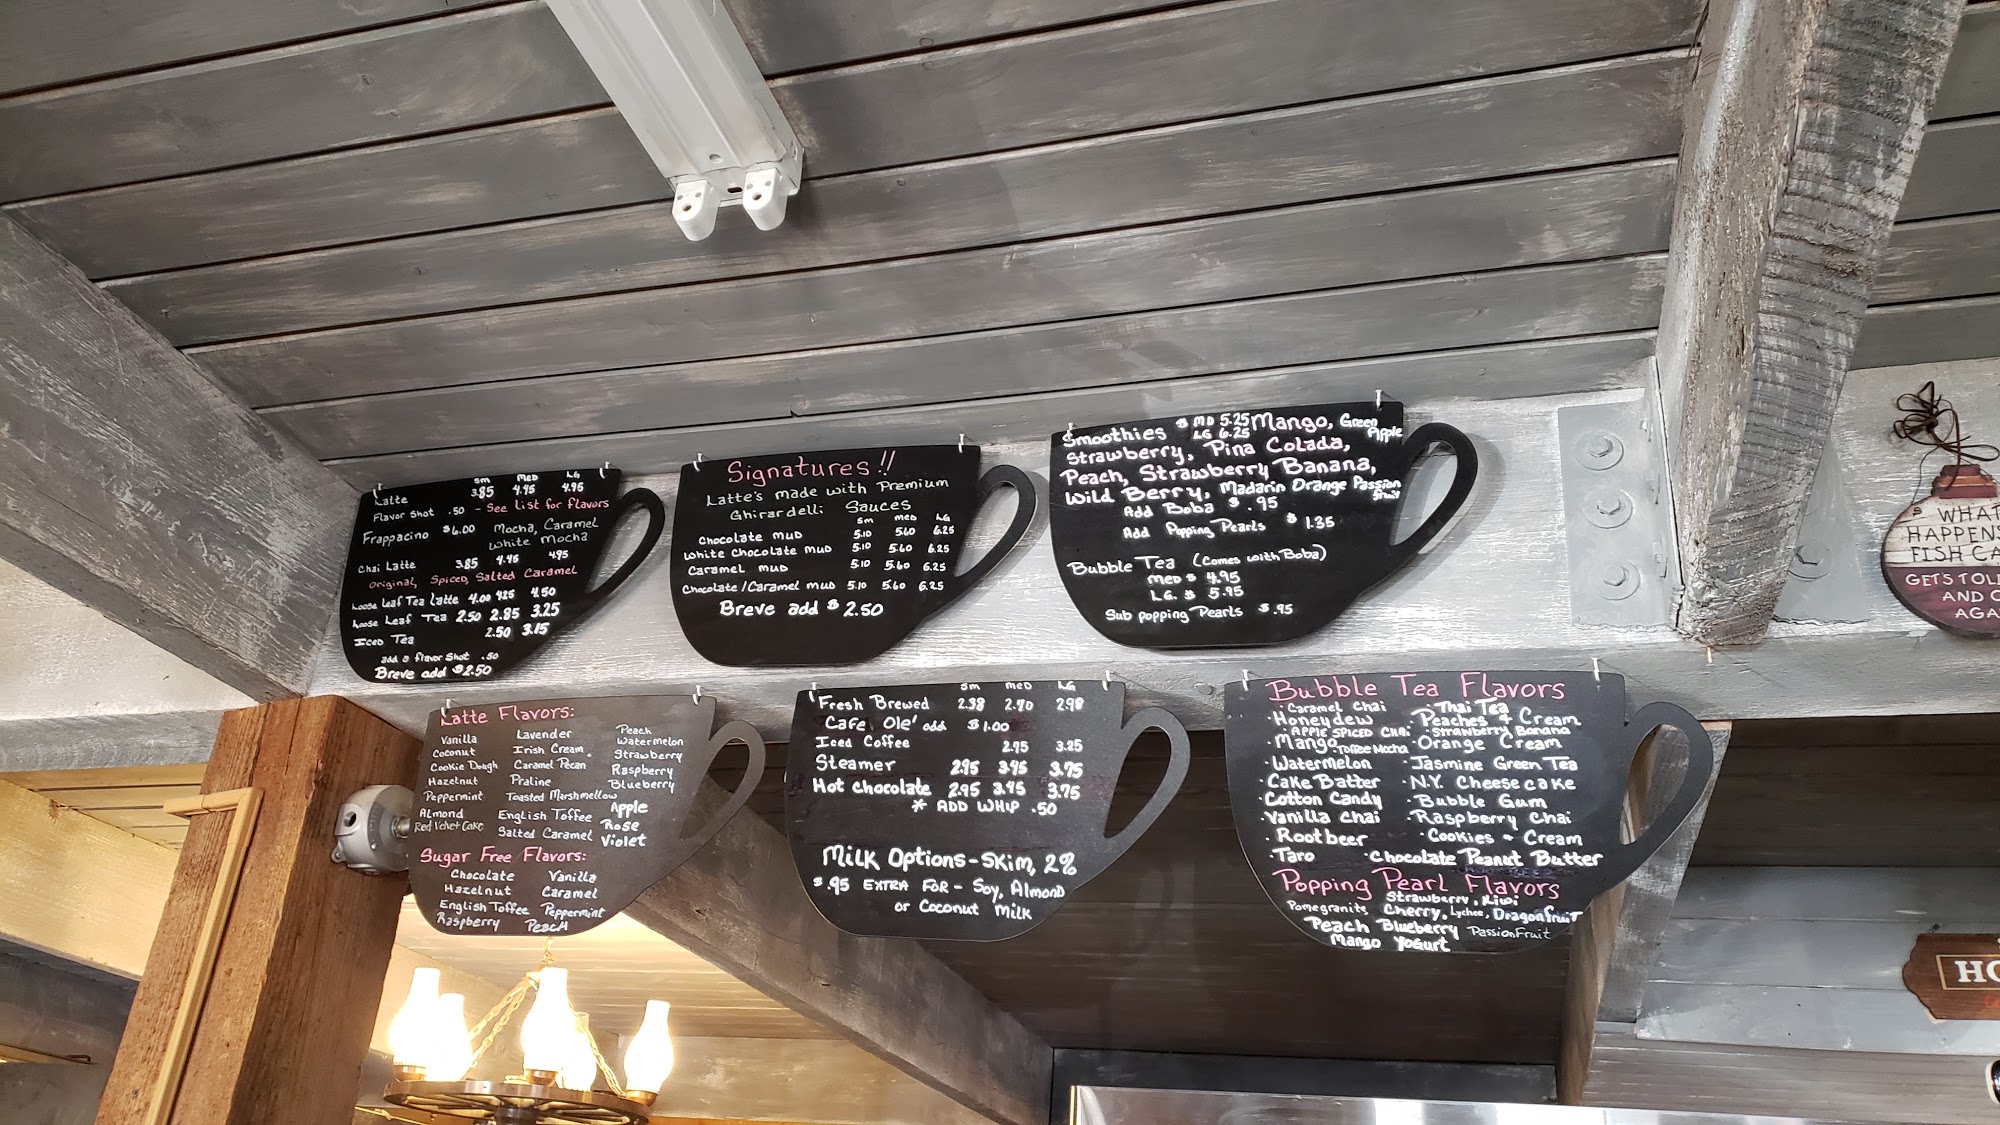 sm MED LG
Latte 3.85 4.45 4.95
Flavor Shot .50 - See list for flavors
Frappacino $6.00 Mocha, Caramel
White Mocha
Chai Latte 3.85 4.45 4.95
Original, Spiced, Salted Caramel
Loose Leaf Tea Latte 4.00 4.25 4.50
Loose Leaf Tea 2.50 2.85 3.25
Iced Tea 2.50 3.15
add a flavor shot .50
Breve add $2.50
Signatures!!
Latte's made with Premium
Ghirardelli Sauces
sm med LG
Chocolate mud 5.10 5.60 6.25
White Chocolate mud 5.10 5.60 6.25
Caramel mud 5.10 5.60 6.25
Chocolate/Caramel mud 5.10 5.60 6.25
Breve add $2.50
Smoothies $ MD 5.25 Mango, Green
LG 6.25 Apple
Strawberry, Pina Colada,
Peach, Strawberry Banana,
Wild Berry, Madarin Orange Passion
fruit
Add Boba $ .95
Add Popping Pearls $ 1.35
Bubble Tea (Comes with Boba)
med $ 4.95
LG. $ 5.95
Sub popping Pearls $ .95
Latte Flavors:
Vanilla Lavender Peach
Coconut Irish Cream Watermelon
Cookie Dough Caramel Pecan Strawberry
Hazelnut Praline Raspberry
Peppermint Toasted Marshmellow Blueberry
Almond English Toffee Apple
Red Velvet Cake Salted Caramel Rose
Violet
Sugar Free Flavors:
Chocolate Vanilla
Hazelnut Caramel
English Toffee Peppermint
Raspberry Peach
sm med LG
Fresh Brewed 2.38 2.70 2.98
Cafe Ole' add $1.00
Iced Coffee 2.75 3.25
Steamer 2.95 3.45 3.75
Hot Chocolate 2.95 3.45 3.75
* ADD WHIP .50
Milk Options - Skim, 2%
$.95 EXTRA FOR - Soy, Almond
or Coconut Milk
Bubble Tea Flavors
· Caramel Chai · Thai Tea
· Honeydew · Peaches & Cream
· APPLE SPICED CHAI · Strawberry Banana
· Mango · Toffee Mocha · Orange Cream
· Watermelon · Jasmine Green Tea
· Cake Batter · N.Y. Cheesecake
· Cotton Candy · Bubble Gum
· Vanilla Chai · Raspberry Chai
· Rootbeer · Cookies & Cream
· Taro · Chocolate Peanut Butter
Popping Pearl Flavors
Strawberry, Kiwi
Pomegranite Cherry, Lychee, Dragonfruit
Peach Blueberry PassionFruit
Mango Yogurt
WHAT
HAPPENS
FISH CA
GETS TOL
AND
AGA
HO